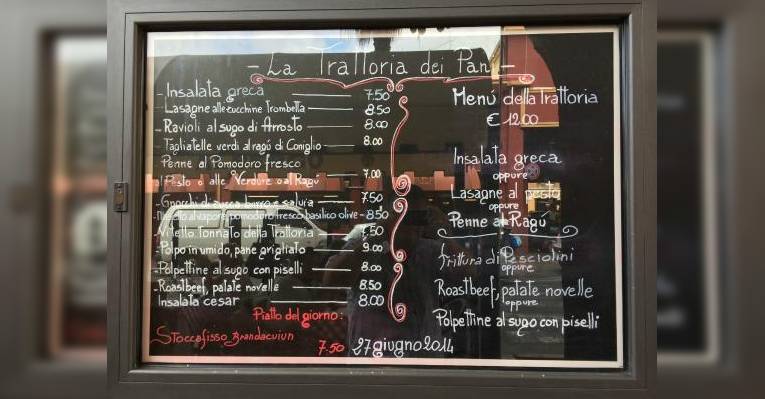 - La Trattoria dei Pani -
- Insalata greca 7.50
- Lasagne alle zucchine Trombetta 8.50
- Ravioli al sugo di Arrosto 8.00
- Tagliatelle verdi al ragú di Coniglio 8.00
Penne al Pomodoro fresco
al Pesto o alle Verdure o al Ragú 7.00
- Gnocchi di zucca burro e salvia 7.50
al vapore, pomodoro fresco basilico olive - 8.50
- Vitello tonnato della Trattoria 7.50
- Polpo in umido, pane grigliato 9.00
- Polpettine al sugo con piselli 8.00
- Roastbeef, patate novelle 8.50
Insalata cesar 8.00
Piatto del giorno:
Stoccafisso Brandacuiun
7.50 27 giugno 2014
Menú della Trattoria
€ 12.00
Insalata greca
oppure
Lasagne al pesto
oppure
Penne al Ragú
frittura di Pesciolini
oppure
Roastbeef, patate novelle
oppure
Polpettine al sugo con piselli